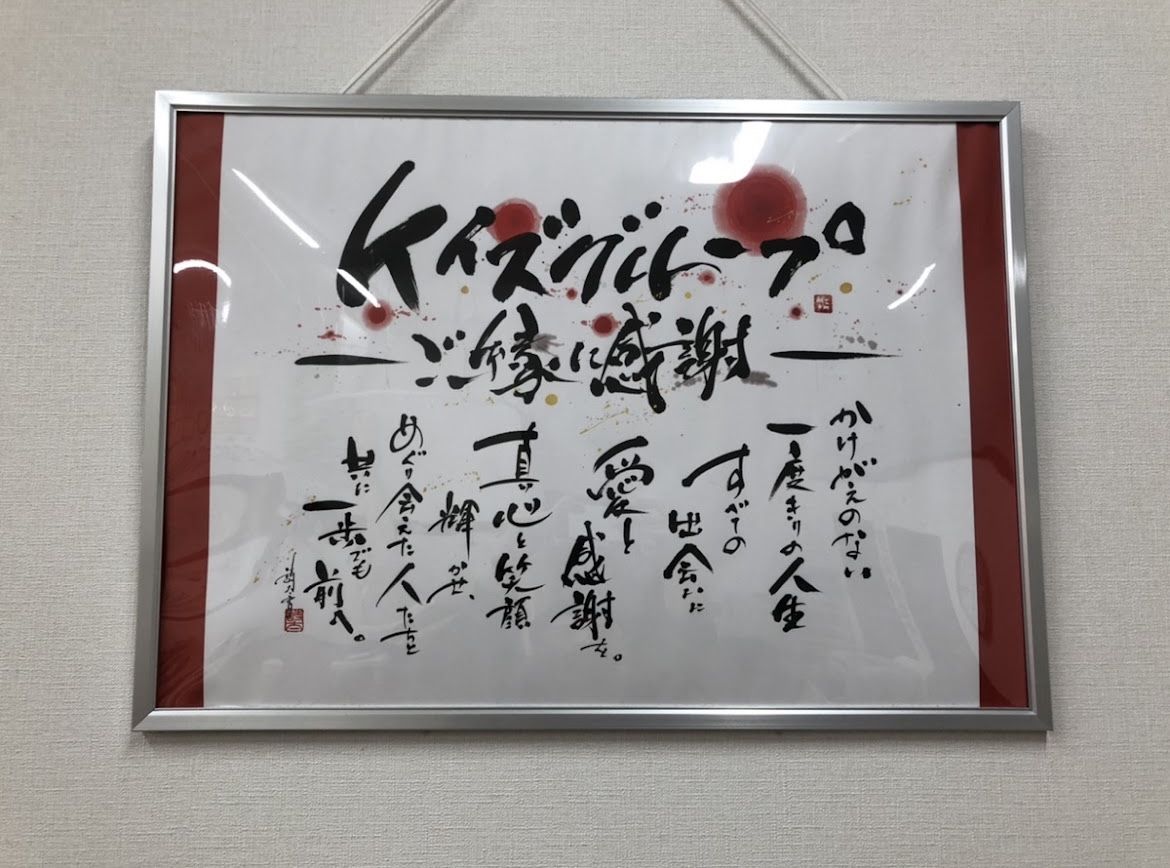 ケイズグループ
ご縁に感謝
かけがえのない
一度きりの人生
すべての
出会いに
愛と
感謝を。
真心と笑顔
輝かせ、
めぐり会えた人たちと
共に
一歩でも
前へ。